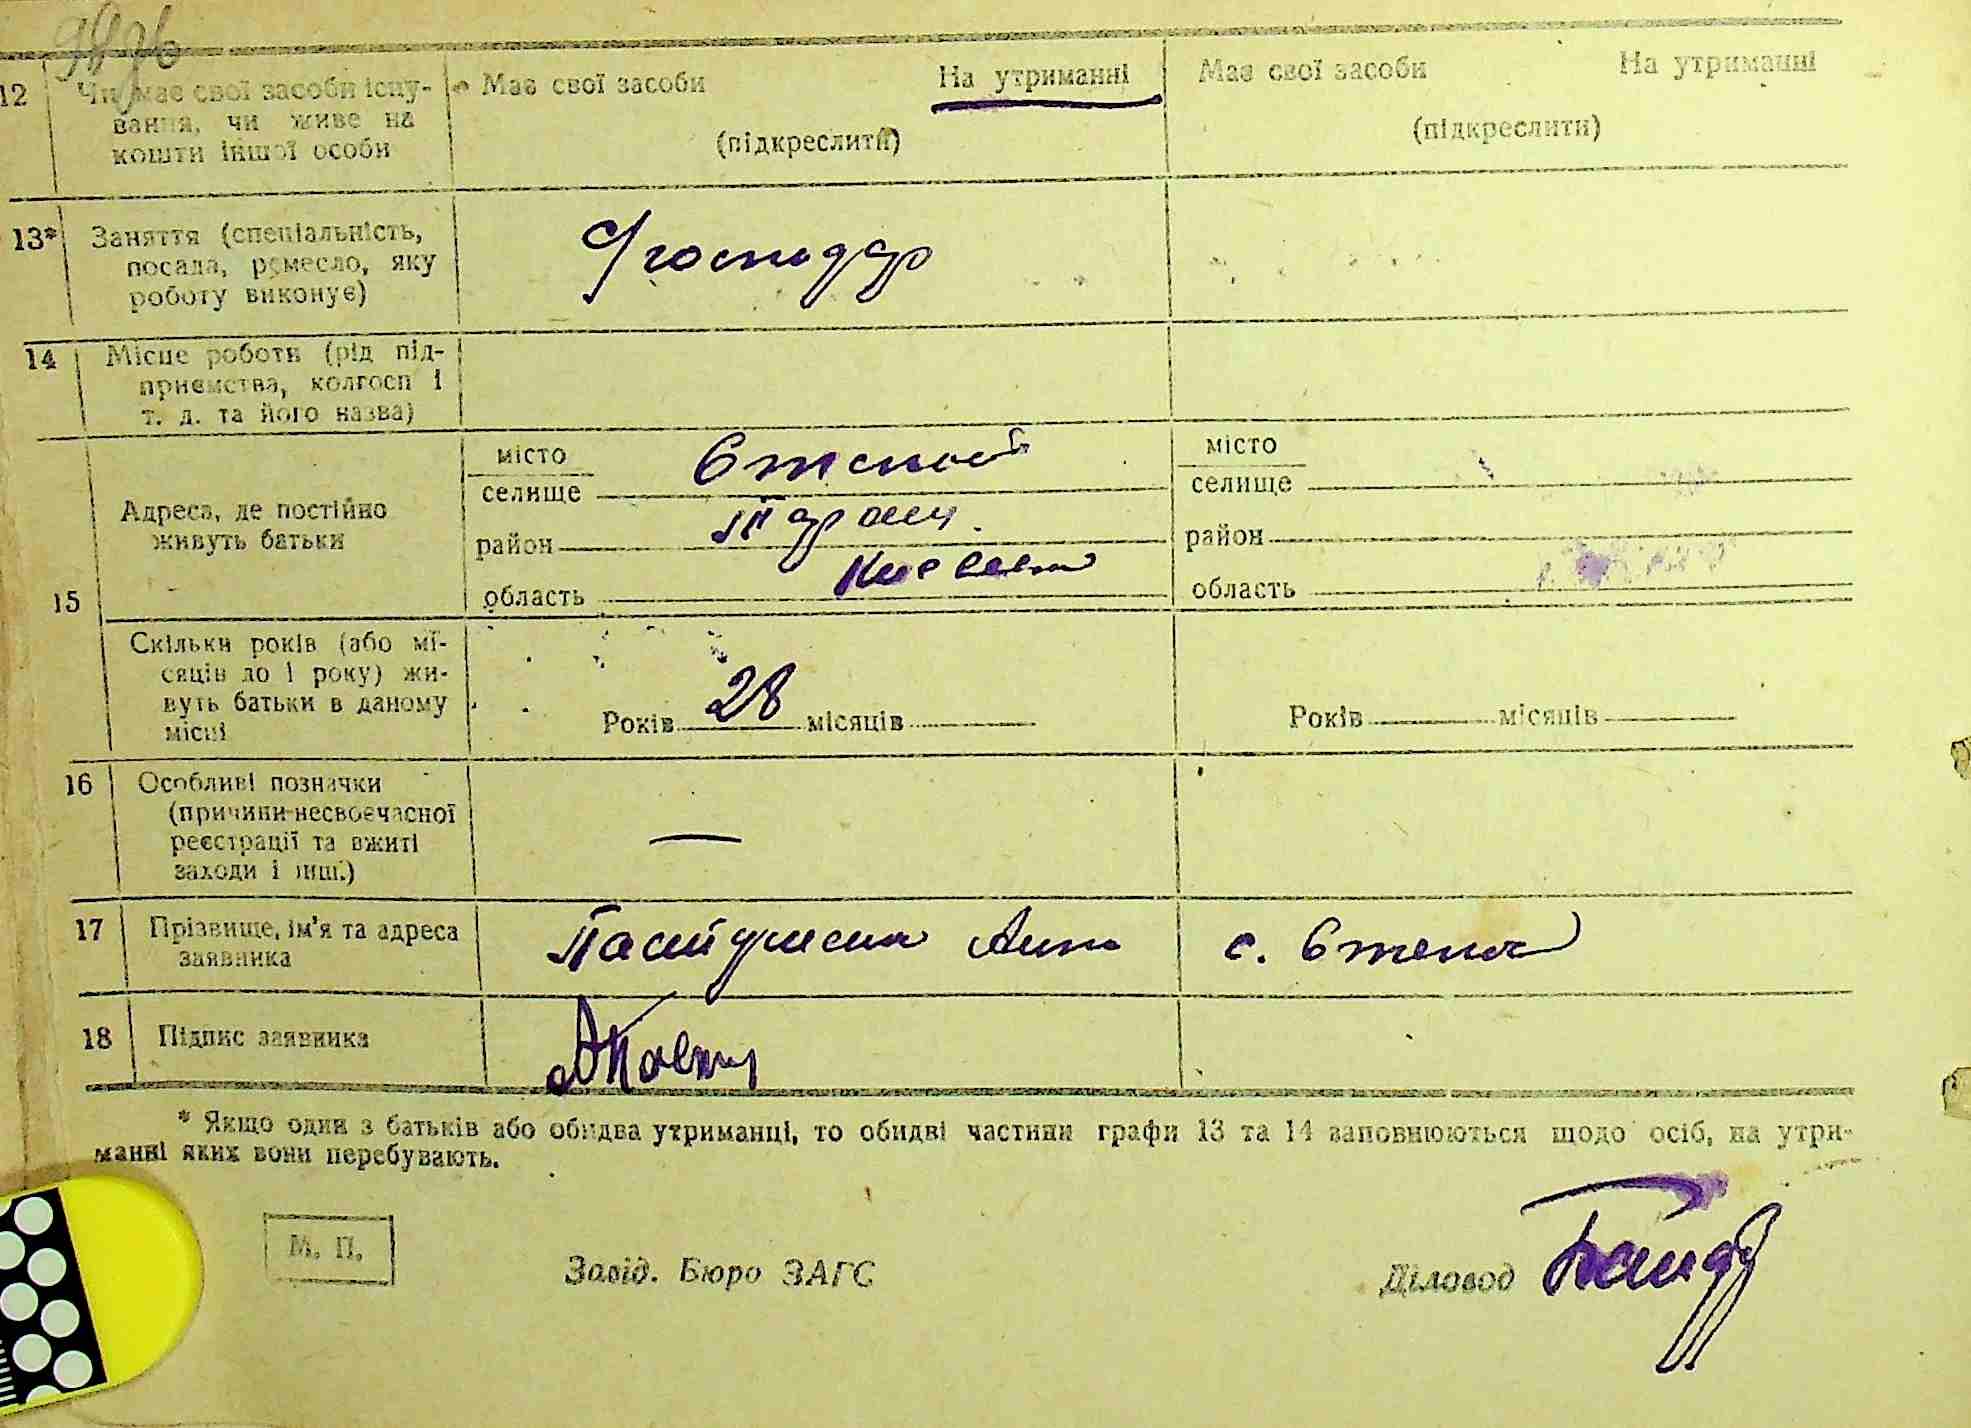 12 Чи має свої засоби існу- Має свої засоби На утриманні Має свої засоби На утриманні
вання, чи живе на (підкреслити) (підкреслити)
кошти іншої особи
13* Заняття (спеціальність,
посада, ремесло, яку
роботу виконує)
господар
14 Місце роботи (рід під-
приємства, колгосп і
т. д. та його назва)
15 Адреса, де постійно
живуть батьки
місто місто
селище селище
район район
область область
Скільки років (або мі-
сяців до 1 року) жи-
вуть батьки в даному
місці
Років 28 місяців Років місяців
16 Особливі позначки
(причини несвоєчасної
реєстрації та вжиті
заходи і інш.)
—
17 Прізвище, ім'я та адреса
заявника
с.
18 Підпис заявника
* Якщо один з батьків або обидва утриманці, то обидві частини графи 13 та 14 заповнюються щодо осіб, на утри-
манні яких вони перебувають.
М. П. Завід. Бюро ЗАГС Діловод